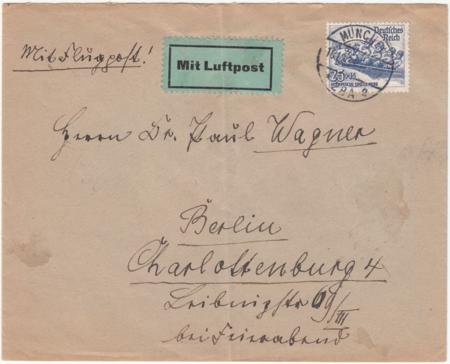 Mit Flugpost!
Mit Luftpost
Deutsches Reich
MÜNCHEN
2BA
Herrn Dr. Paul Wagner
Berlin
Charlottenburg 4
Leibnizstr 69/III
bei Feierabend